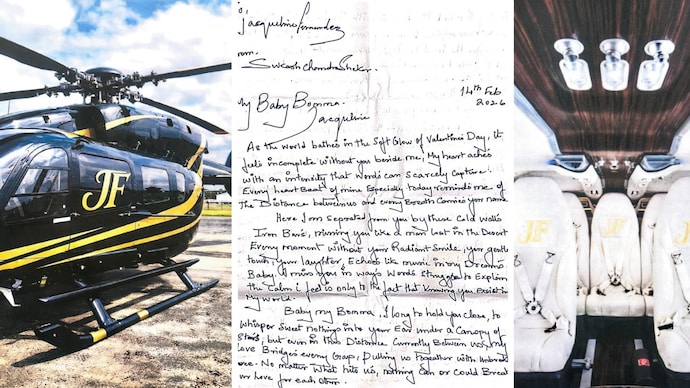 JF
To,
Jacqueline Fernandez
From:
Sukash Chandra Sheker.
14th Feb
2026
My Baby Bomma.
Jacquline
As the World bathes in the Soft Glow of Valentines Day, it
feels incomplete without you beside me, My heart aches
with an intensity that words can scarcely capture.
Every heart Beat of mine Especialy today reminds me of
The Distance between us and every Breath Carries your Name
Here I am seperated from you by these Cold walls
Iron Bars, Missing you like a man lost in the Desert
Every moment without your Radiant Smile, your gentle
touch, your laughter, Echoes like music in my Dreams
Baby, I miss you in ways Words Struggle to Explain
the Calm i feel is only to the fact that knowing you Exist in
My World.
Baby my Bomma, I long to hold you close, to
whisper Sweet Nothings into your Ear under a Canopy of
Stars, but even in this Distance Currently Between us, my
love Bridges every Gap, Pulling us Together with
No matter What hits us, nothing Can or Could Break
our Love for each other.
JF
JF